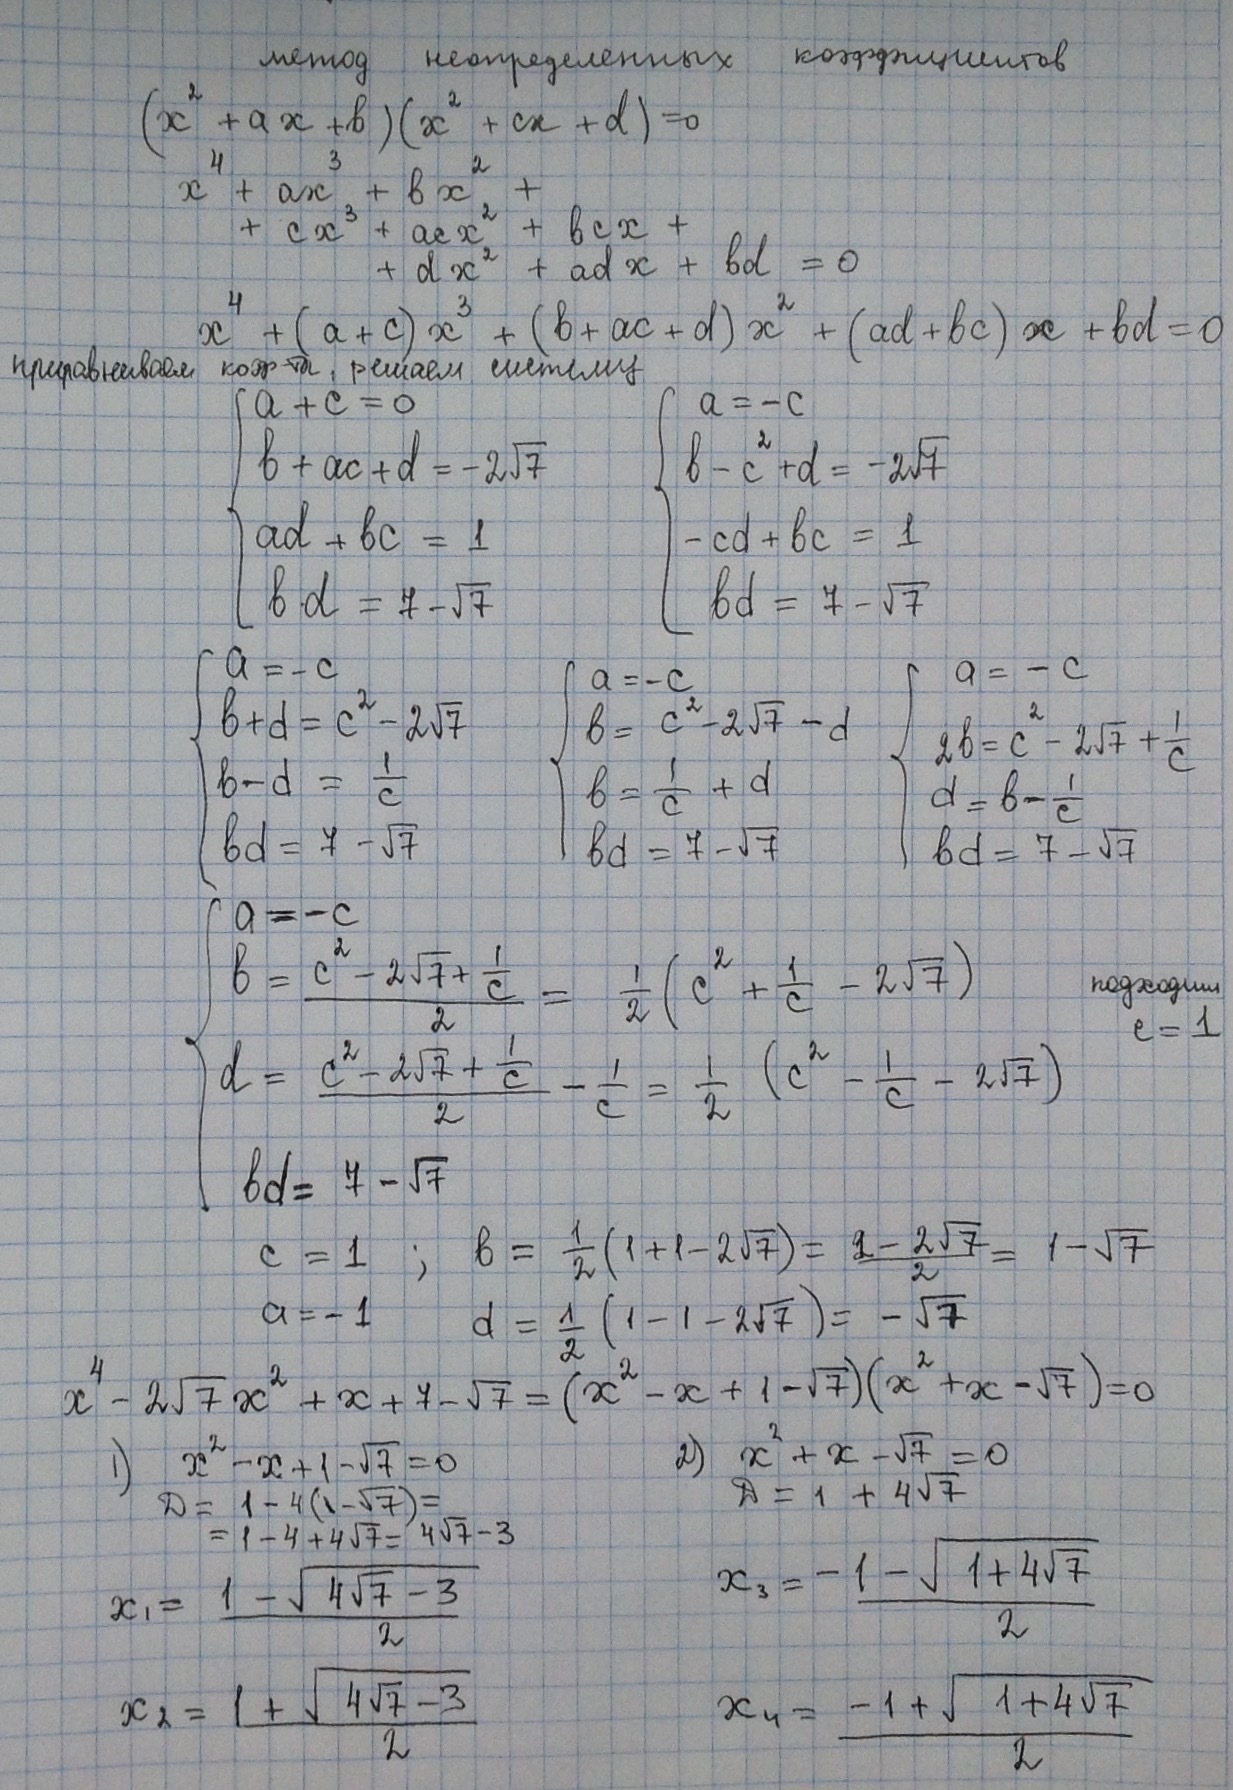 метод неопределенных коэффициентов
(x² + ax + b)(x² + cx + d) = 0
x⁴ + ax³ + bx² +
+ cx³ + acx² + bcx +
+ dx² + adx + bd = 0
x⁴ + (a + c)x³ + (b + ac + d)x² + (ad + bc)x + bd = 0
приравниваем коэф-ты, решаем систему
a + c = 0
b + ac + d = -2√7
ad + bc = 1
bd = 7 - √7
a = -c
b - c² + d = -2√7
-cd + bc = 1
bd = 7 - √7
a = -c
b + d = c² - 2√7
b - d = 1/c
bd = 7 - √7
a = -c
b = c² - 2√7 - d
b = 1/c + d
bd = 7 - √7
a = -c
2b = c² - 2√7 + 1/c
d = b - 1/c
bd = 7 - √7
a = -c
b = (c² - 2√7 + 1/c)/2 = 1/2 (c² + 1/c - 2√7)
d = (c² - 2√7 + 1/c)/2 - 1/c = 1/2 (c² - 1/c - 2√7)
bd = 7 - √7
подходит
c = 1
c = 1 ; b = 1/2 (1 + 1 - 2√7) = (2 - 2√7)/2 = 1 - √7
a = -1 d = 1/2 (1 - 1 - 2√7) = -√7
x⁴ - 2√7x² + x + 7 - √7 = (x² - x + 1 - √7)(x² + x - √7) = 0
1) x² - x + 1 - √7 = 0
D = 1 - 4(1 - √7) =
= 1 - 4 + 4√7 = 4√7 - 3
x₁ = (1 - √(4√7 - 3))/2
x₂ = (1 + √(4√7 - 3))/2
2) x² + x - √7 = 0
D = 1 + 4√7
x₃ = (-1 - √(1 + 4√7))/2
x₄ = (-1 + √(1 + 4√7))/2